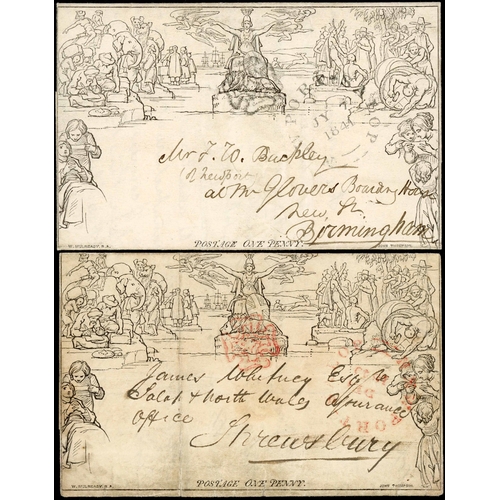 JY 7
184
Mr F. W. Buckley
(of Newport
at Mr Glovers Boarding House
New St.
Birmingham
W. MULREADY, R.A.
POSTAGE ONE PENNY.
JOHN THOMPSON
James Whitney Esq
Salop & North Wales Assurance
Office
Shrewsbury
W. MULREADY, R.A.
POSTAGE ONE PENNY.
JOHN THOMPSON